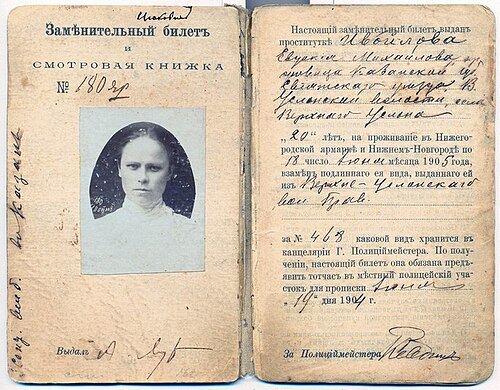 Замѣнительный билетъ
и
СМОТРОВАЯ КНИЖКА
№ 180яр
Выдалъ
Настоящій замѣнительный билетъ выданъ
проституткѣ Ивойлова
Евдокія Михайлова
Казанской
Свіяжскаго уѣзда В.
Услонской волости села
Верхняго Услона
„20" лѣтъ, на проживаніе въ Нижего-
родской ярмаркѣ и Нижнемъ-Новгородѣ по
18 число Іюня мѣсяца 1905 года,
взамѣнъ подлиннаго ея вида, выданнаго ей
изъ Верхне-Услонскаго
вол Прав.
за № 468 каковой видъ хранится въ
канцеляріи Г. Полиціймейстера. По полу-
ченіи, настоящій билетъ она обязана предъ-
явить тотчасъ въ мѣстный полицейскій уча-
стокъ для прописки Іюня
„19" дня 1904 г.
За Полиціймейстера